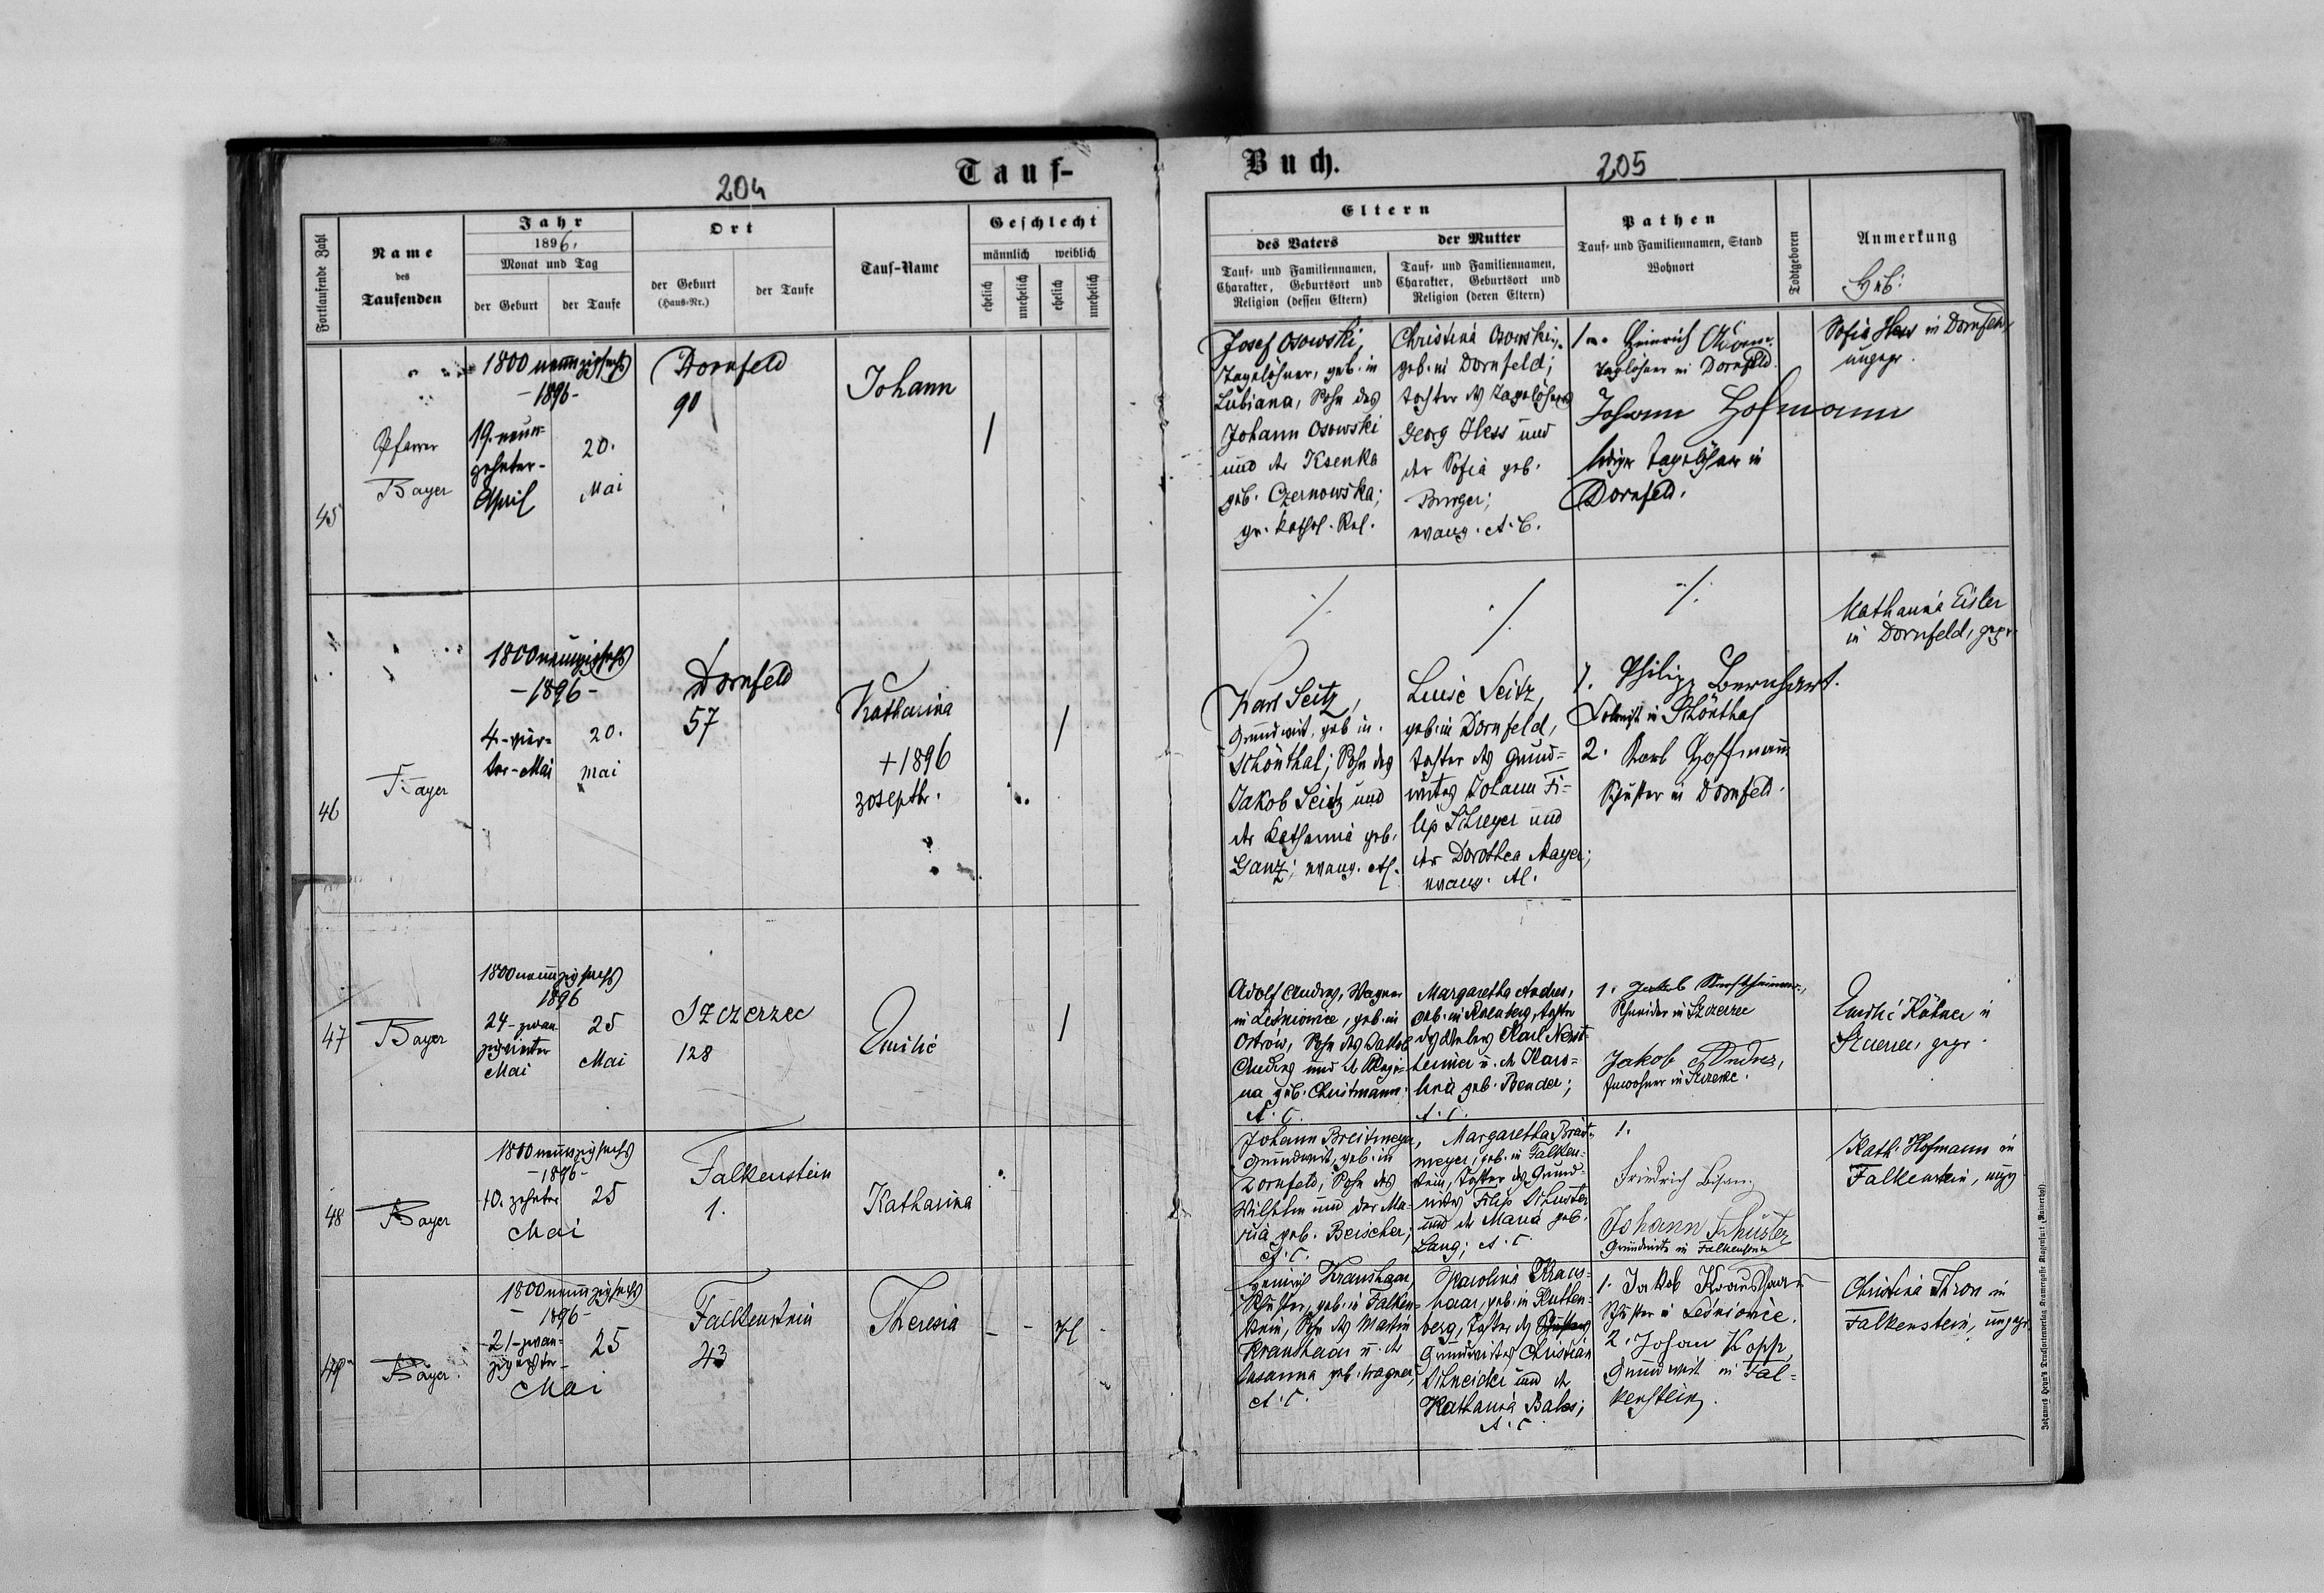 204
Tauf-
Fortlaufende Zahl
Name
des
Taufenden
Jahr
1896.
Monat und Tag
der Geburt
der Taufe
Ort
der Geburt
(Haus-Nr.)
der Taufe
Tauf-Name
Geschlecht
männlich
weiblich
ehelich
unehelich
ehelich
unehelich
45
Pfarrer
Bayer
1800 neunzigsechs
-1896-
19. neun-
zehnter-
April
20.
Mai
Dornfeld
90
Johann
/
46
Bayer
1800 neunzigsechs
-1896-
4.-vier-
ter-Mai
20.
Mai
Dornfeld
57
Katharina
+1896
30 septbr.
/
47
Bayer
1800 neunzigsechs
1896
24-zwan
zigvierter
Mai
25
Mai
Szczerzec
128
Emilie
/
48
Bayer
1800 neunzigsechs
-1896-
10. zehnter
Mai
25
Falkenstein
1.
Katharina
49
Bayer
1800 neunzigsechs
-1896-
21-zwan-
zigerster-
Mai
25
Falkenstein
43
Theresia
Buch.
205
Eltern
des Vaters
Tauf- und Familiennamen,
Charakter, Geburtsort und
Religion (dessen Eltern)
der Mutter
Tauf- und Familiennamen,
Charakter, Geburtsort und
Religion (deren Eltern)
Pathen
Tauf- und Familiennamen, Stand
Wohnort
Todtgeboren
Anmerkung
Heb:
Josef Osowski,
Tagelöhner, geb. in
Lubiana, Sohn des
Johann Osowski
und der Ksenka
geb. Czernowska;
gr. kathol. Rel.
Christina Osowski,
geb. in Dornfeld;
Tochter des Tagelöhners
Georg Hess und
der Sofia geb.
Burger;
evang. A. C.
Heinrich
Taglöhner in Dornfeld.
Johann Hofmann
lediger Tagelöhner in
Dornfeld.
Sofia Hess in Dornfeld,
ungepr.
./.
./.
./.
Karl Seitz,
Grundwirt, geb. in
Schönthal; Sohn des
Jakob Seitz und
der Katharina geb.
Ganz; evang.
Luise Seitz,
geb. in Dornfeld,
Tochter des Grund-
wirtes Johann Fi-
lip Schreyer und
der Dorothea Mayer;
evang.
1. Philipp Bernhart.
Kolonist in Schönthal
2. Karl Hoffmann
Schuster in Dornfeld.
Katharina Eisler
in Dornfeld, gepr.
Adolf Andres, Wagner
in Leśniowice, geb. in
Ostrów, Sohn des Jakob
Andres und der Regi-
na geb. Christmann;
A. C.
Margaretha Andres,
geb. in Rosenberg, Tochter
des Karl
u. der Karo-
lina geb. Bender;
A. C.
1. Jakob
Schneider in Szczerzec
Jakob Andres,
Inwohner in Szczerzec.
Emilie in
Szczerzec, gepr.
Johann Breitmeyer,
Grundwirt, geb. in
Dornfeld, Sohn des
Wilhelm und der Ma-
ria geb. Beischer;
A. C.
Margaretha Breit-
meyer, geb. in Falken-
stein, Tochter des Grund-
wirtes Filip Schuster
und der Maria geb.
Lang; A. C.
1.
Friedrich Bisanz
Johann Schuster
Grundwirte in Falkenstein
Kath. Hofmann in
Falkenstein, ungp
Heinrich Kraushaar,
Schuster, geb. in Falken-
stein, Sohn des Martin
Kraushaar u. der
Susanna geb. Wagner,
A. C.
Karolina Kraus-
haar, geb. in Kutten-
berg, Tochter des
Grundwirtes Christian
Schneider und der
Katharina Bales;
A. C.
1. Jakob Kraushaar
Schuster in Leśniowice.
2. Johan Kopp,
Grundwirt in Fal-
kenstein.
Christina Thron in
Falkenstein, ungepr